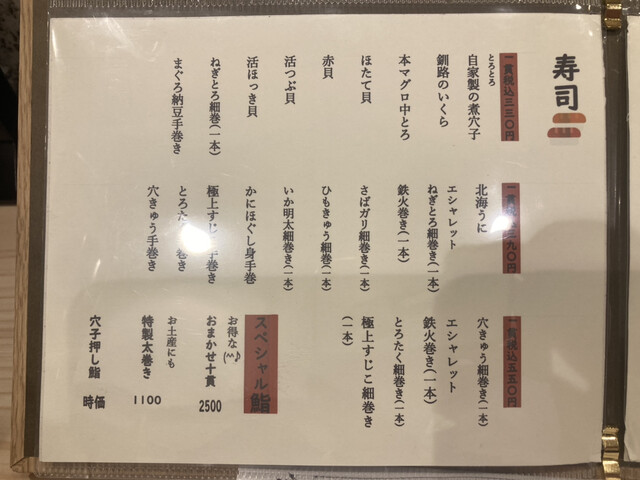 寿司
一貫税込三三〇円
とろとろ
自家製の煮穴子
釧路のいくら
本マグロ中とろ
ほたて貝
赤貝
活つぶ貝
活ほっき貝
ねぎとろ細巻(一本)
まぐろ納豆手巻き
一貫税込 九〇円
北海うに
エシャレット
ねぎとろ細巻き(一本)
鉄火巻き(一本)
さばガリ細巻き(一本)
ひもきゅう細巻(一本)
いか明太細巻き(一本)
かにほぐし身手巻
極上すじこ手巻き
とろたく手巻き
穴きゅう手巻き
一貫税込五五〇円
穴きゅう細巻き(一本)
エシャレット
鉄火巻き(一本)
とろたく細巻き(一本)
極上すじこ細巻き
(一本)
スペシャル鮨
お得な(^^♪
おまかせ十貫 2500
お土産にも
特製太巻き 1100
穴子押し鮨 時価